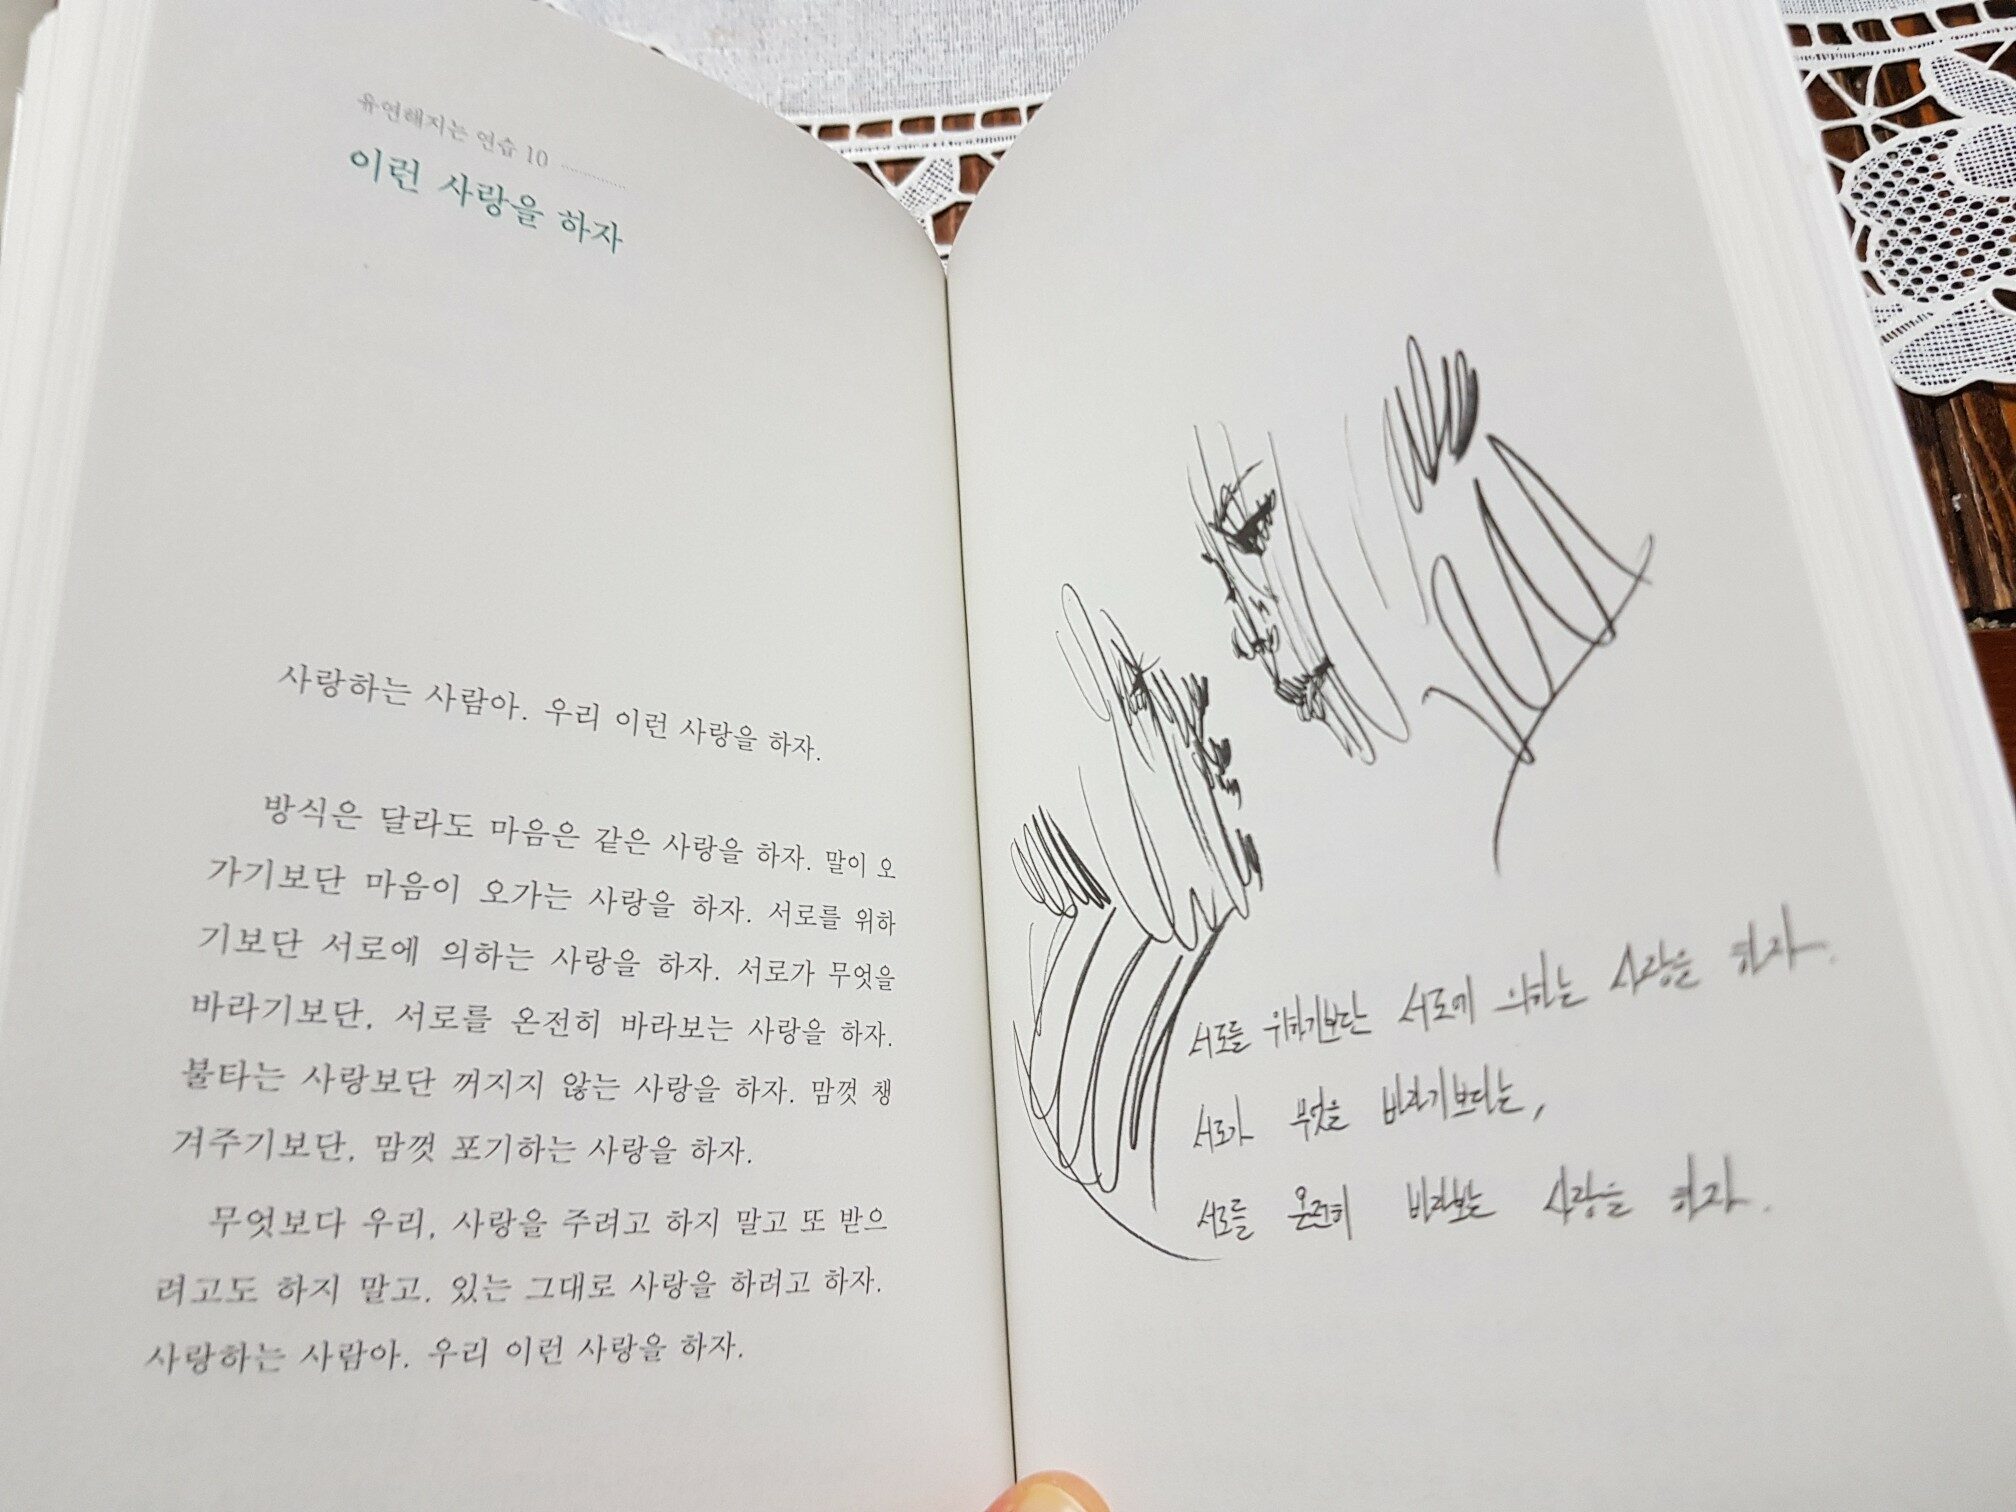 유연해지는 연습 10
이런 사랑을 하자
사랑하는 사람아. 우리 이런 사랑을 하자.
방식은 달라도 마음은 같은 사랑을 하자. 말이 오
가기보단 마음이 오가는 사랑을 하자. 서로를 위하
기보단 서로에 의하는 사랑을 하자. 서로가 무엇을
바라기보단, 서로를 온전히 바라보는 사랑을 하자.
불타는 사랑보단 꺼지지 않는 사랑을 하자. 맘껏 챙
겨주기보단, 맘껏 포기하는 사랑을 하자.
무엇보다 우리, 사랑을 주려고 하지 말고 또 받으
려고도 하지 말고. 있는 그대로 사랑을 하려고 하자.
사랑하는 사람아. 우리 이런 사랑을 하자.
서로를 위하기보단 서로에 의하는 사랑을 하자.
서로가 무엇을 바라기보다는,
서로를 온전히 바라보는 사랑을 하자.